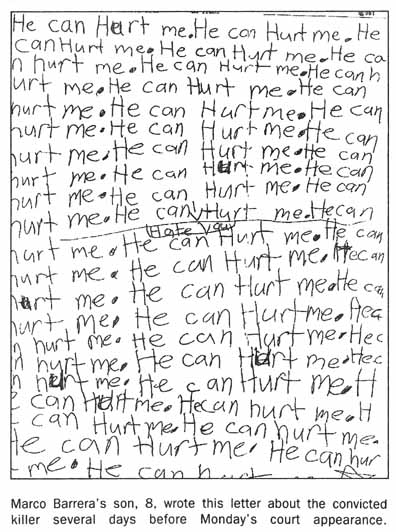 He can Hurt me. He can Hurt me. He
can Hurt me. He can Hurt me. He ca
n hurt me. He can Hurt me. He can h
urt me. He can Hurt me. He can
hurt me. He can Hurt me. He can
hurt me. He can Hurt me. He can
hurt me. He can Hurt me. He can
hurt me. He can Hurt me. He can
hurt me. He can Hurt me. He can
hurt me. He can Hurt me. He can
Hate
hurt me. He can Hurt me. He can
hurt me. He can Hurt me. He can
hurt me. He can Hurt me. He can
hurt me. He can Hurt me. Hec
n hurt me. He can Hurt me. Hec
n hurt me. He can Hurt me. Hec
n hurt me. He can Hurt me. H
can Hurt me. He can hurt me. H
can Hurt me. He can hurt me.
He can Hurt me. He can hur
me. He can hurt
Marco Barrera's son, 8, wrote this letter about the convicted
killer several days before Monday's court appearance.